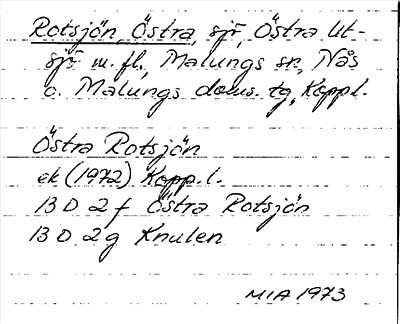 Rotsjön, Östra, sjö, Östra Ut-
sjö m. fl., Malungs sn, Nås
o. Malungs doms. tg, Koppl.
Östra Rotsjön
ek (1972) Kopp. l.
13 D 2 f Östra Rotsjön
13 D 2g Knulen
MIA 1973